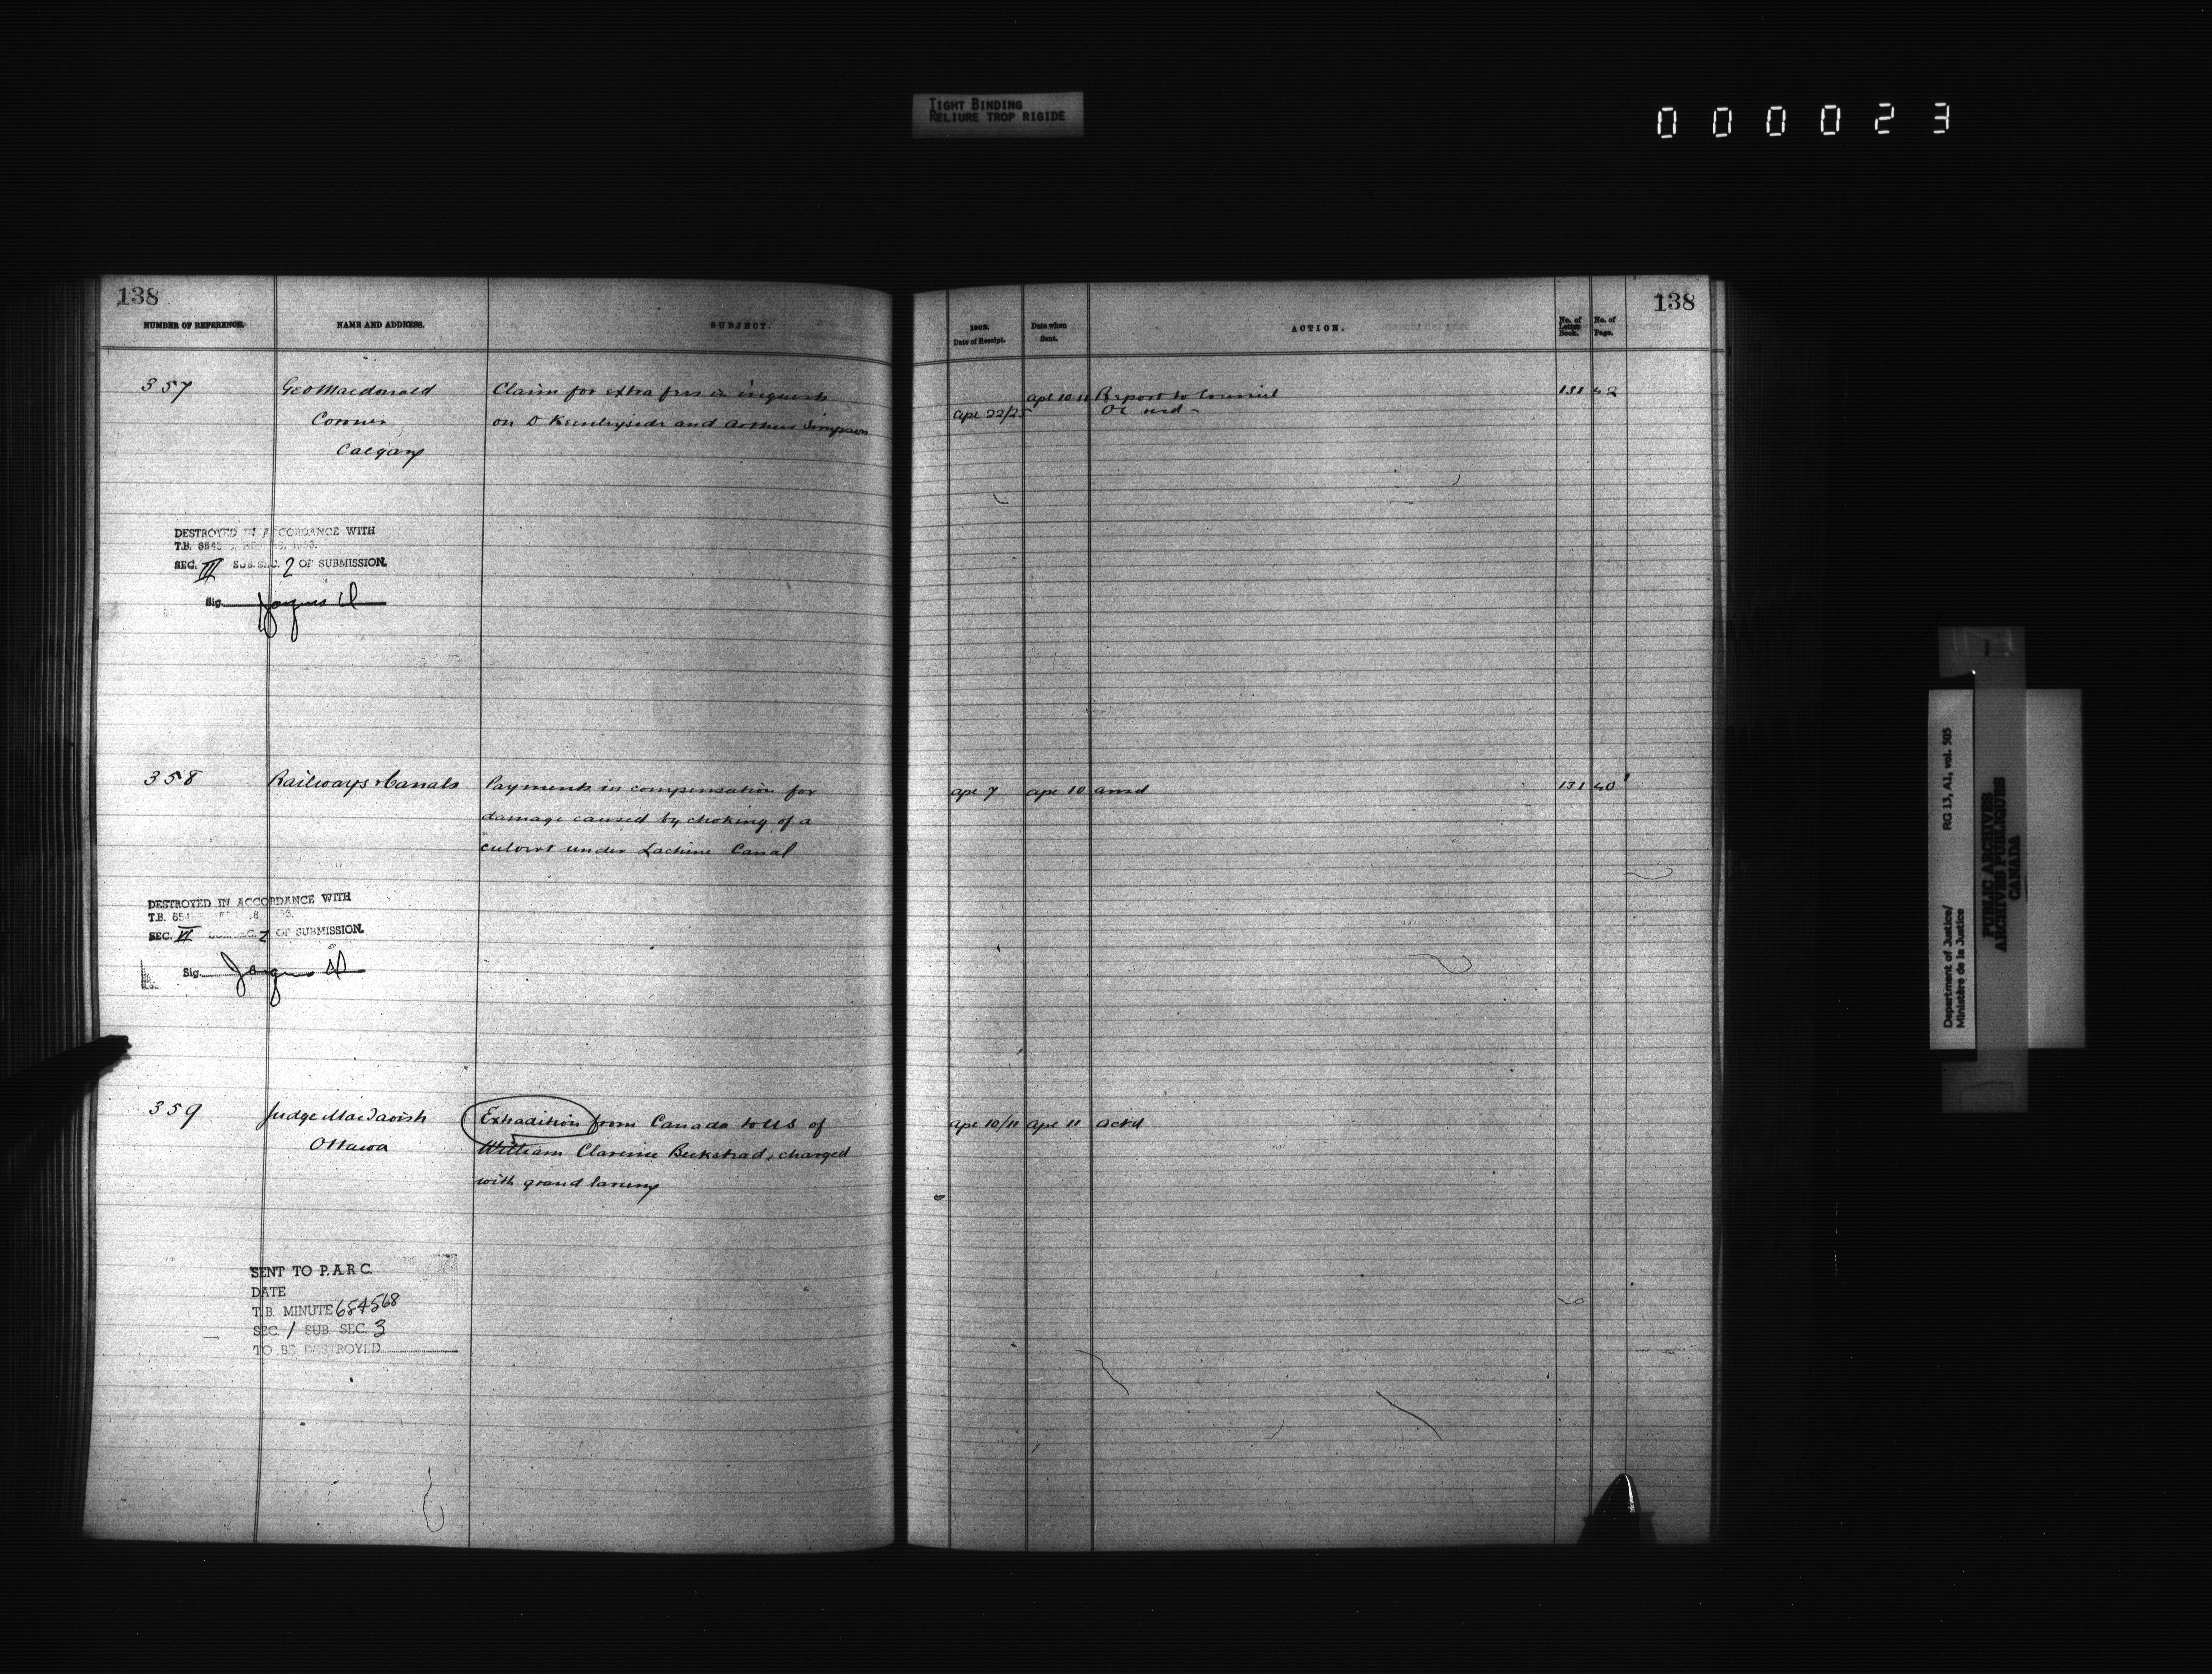 TIGHT BINDING
RELIURE TROP RIGIDE
000023
138
NUMBER OF REFERENCE.
NAME AND ADDRESS.
SUBJECT.
357
Geo Macdonald
Coroner
Calgary
Claim for extra fees in inquests
on D Keenleyside and Arthur Simpson
DESTROYED IN ACCORDANCE WITH
T.B.
SEC. III SUB. SEC. 2 OF SUBMISSION.
Sig.
358
Railways & Canals
Payments in compensation for
damage caused by choking of a
culvert under Lachine Canal
DESTROYED IN ACCORDANCE WITH
T.B.
SEC. VI SUB. SEC. 2 OF SUBMISSION.
Sig.
359
Judge MacTavish
Ottawa
Extradition from Canada to US of
William Clarence Beckstead, charged
with grand larceny
SENT TO P.A.R.C.
DATE
T.B. MINUTE 654568
SEC. 1 SUB. SEC. 3
TO BE DESTROYED
138
Date of Receipt.
Date when
Sent.
ACTION.
No. of
Letter
Book.
No. of
Page.
Apl 10 11 Report to Council 131 42
Apl 22/25 OC
Apl 7 Apl 10 ansd 131 40
Apl 10/11 Apl 11 ackd
Department of Justice/ RG 13, A1, vol. 505
Ministère de la Justice
PUBLIC ARCHIVES
ARCHIVES PUBLIQUES
CANADA